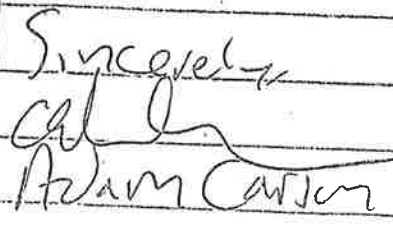 Sincerely,
Adam Carson